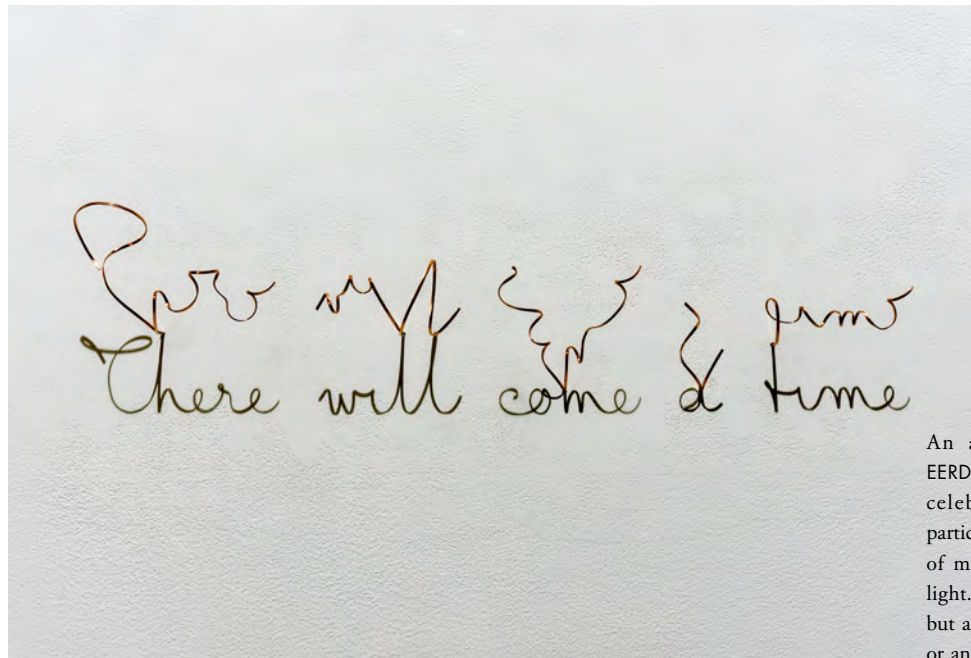 There will come a time
An
EERD
celeb
partic
of m
light.
but a
or an